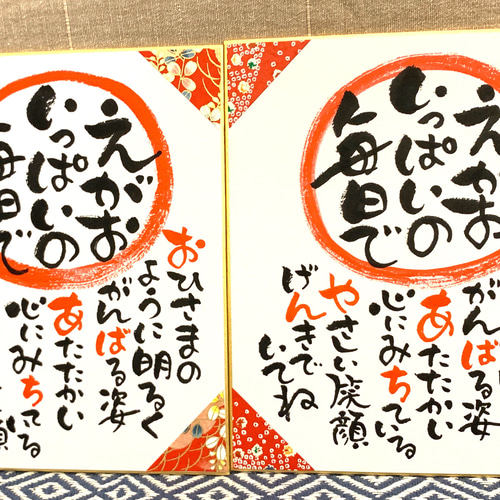 えがお
いっぱいの
毎日で
おひさまの
ように明るく
がんばる姿
あたたかい
心にみちている
えがお
いっぱいの
毎日で
がんばる姿
あたたかい
心にみちている
やさしい笑顔
げんきで
いてね